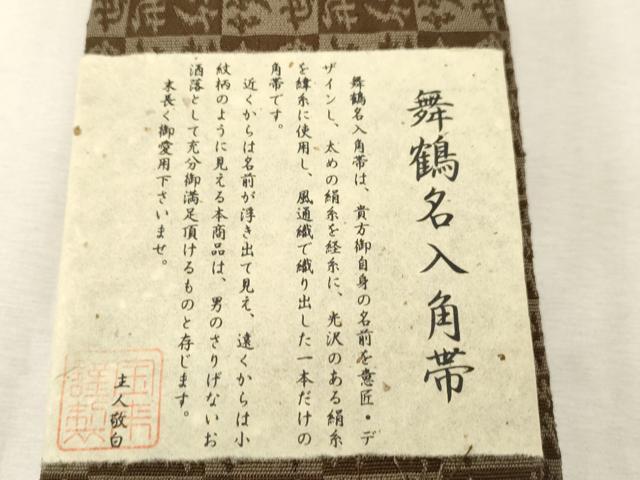 舞鶴名入角帯
舞鶴名入角帯は、貴方御自身の名前を意匠・デ
ザインし、太めの絹糸を経糸に、光沢のある絹糸
を緯糸に使用し、風通織で織り出した一本だけの
角帯です。
近くからは名前が浮き出て見え、遠くからは小
紋柄のように見える本商品は、男のさりげないお
洒落として充分御満足頂けるものと存じます。
末長く御愛用下さいませ。
主人敬白
謹製